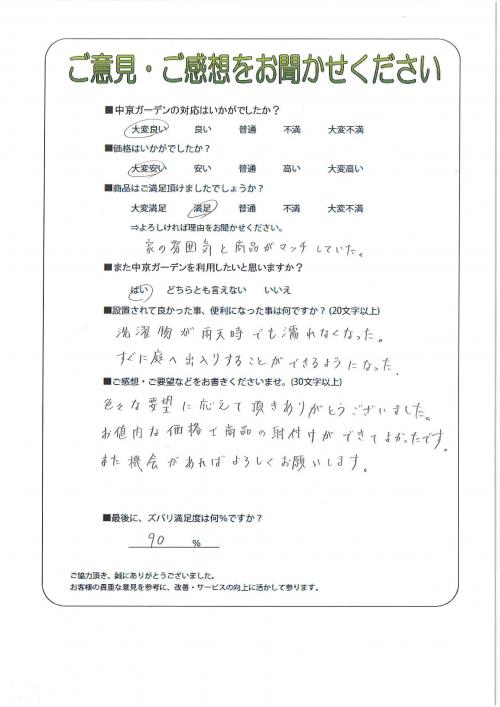 ご意見・ご感想をお聞かせください
■中京ガーデンの対応はいかがでしたか？
大変良い 良い 普通 不満 大変不満
■価格はいかがでしたか？
大変安い 安い 普通 高い 大変高い
■商品はご満足頂けましたでしょうか？
大変満足 満足 普通 不満 大変不満
⇒よろしければ理由をお聞かせください。
家の雰囲気と商品がマッチしていた。
■また中京ガーデンを利用したいと思いますか？
はい どちらとも言えない いいえ
■設置されて良かった事、便利になった事は何ですか？(20文字以上)
洗濯物が雨天時でも濡れなくなった。
すぐに庭へ出入りすることができるようになった。
■ご感想・ご要望などをお書きくださいませ。(30文字以上)
色々な要望に応えて頂きありがとうございました。
お値内な価格で商品の取付けができてよかったです。
また機会があればよろしくお願いします。
■最後に、ズバリ満足度は何%ですか？
90 %
ご協力頂き、誠にありがとうございました。
お客様の貴重な意見を参考に、改善・サービスの向上に活かして参ります。